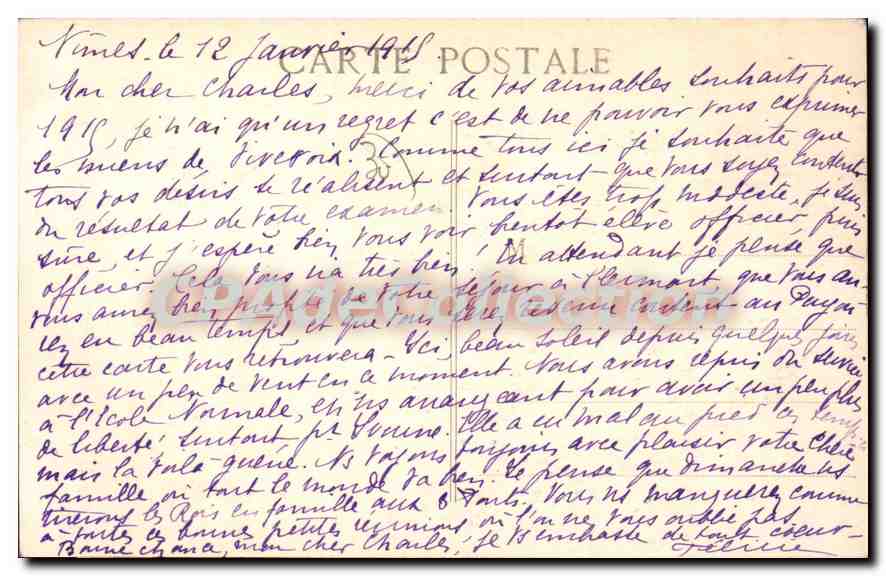 Nîmes - le 12 Janvier 1915
CARTE POSTALE
Mon cher Charles, merci de vos aimables souhaits pour
1915, je n'ai qu'un regret c'est de ne pouvoir vous exprimer
les miens de vive voix. Comme tous ici je souhaite que
35
tous vos désirs se réalisent et surtout que vous soyez content
du résultat de votre examen. Vous êtes trop modeste, je suis
sûre, et j'espère bien vous voir bientôt élève officier, puis
officier. Cela vous ira très bien! En attendant je pense que
vous aurez bien profité de votre séjour à Clermont, que vous au
rez eu beau temps et que vous serez revenu content au
cette carte vous retrouvera - Ici, beau soleil depuis quelques jours
avec un peu de vent en ce moment. Nous avons repris du service
à l'Ecole Normale, et ns avançant pour avoir un peu plus
de liberté surtout pr Yvonne. Elle a eu mal au pied ces temps
mais la voilà guérie. Ns voyons toujours avec plaisir votre chère
famille où tout le monde va bien. Je pense que dimanche ns
tirerons les Rois en famille aux 8 Ponts. Vous ns manquerez comme
à toutes ces bonnes petites réunions où l'on ne vous oublie pas
Bonne chance, mon cher Charles, je vs embrasse de tout coeur -
CPA de collection